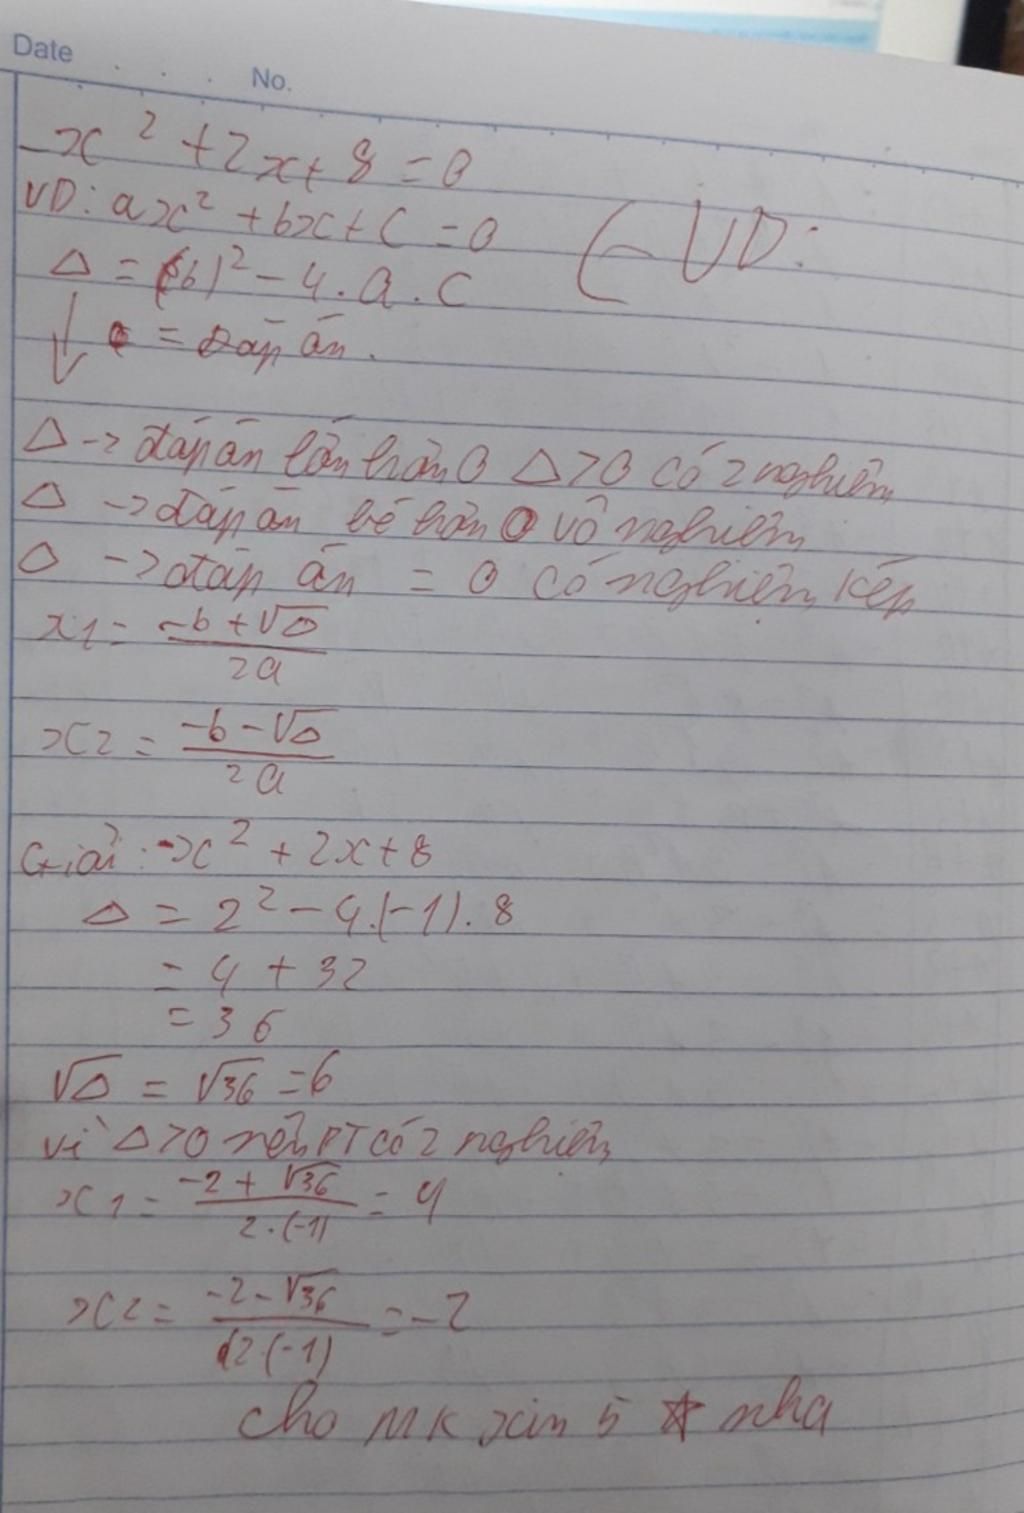 Date . . . No.
-x² + 2x + 8 = 0
VD: ax² + bx + c = 0
(- VD:
Δ = (b)² - 4.a.c
↓ = Đáp án.
Δ -> đáp án lớn hơn 0 Δ > 0 có 2 nghiệm
Δ -> đáp án bé hơn 0 vô nghiệm
Δ -> đáp án = 0 có nghiệm kép
x1 = (-b + √Δ) / 2a
x2 = (-b - √Δ) / 2a
Giải: -x² + 2x + 8
Δ = 2² - 4.(-1).8
= 4 + 32
= 36
√Δ = √36 = 6
Vì Δ > 0 nên PT có 2 nghiệm
x1 = (-2 + √36) / 2.(-1) = 4
x2 = (-2 - √36) / 2.(-1) = -2
cho mk xin 5 ☆ nha